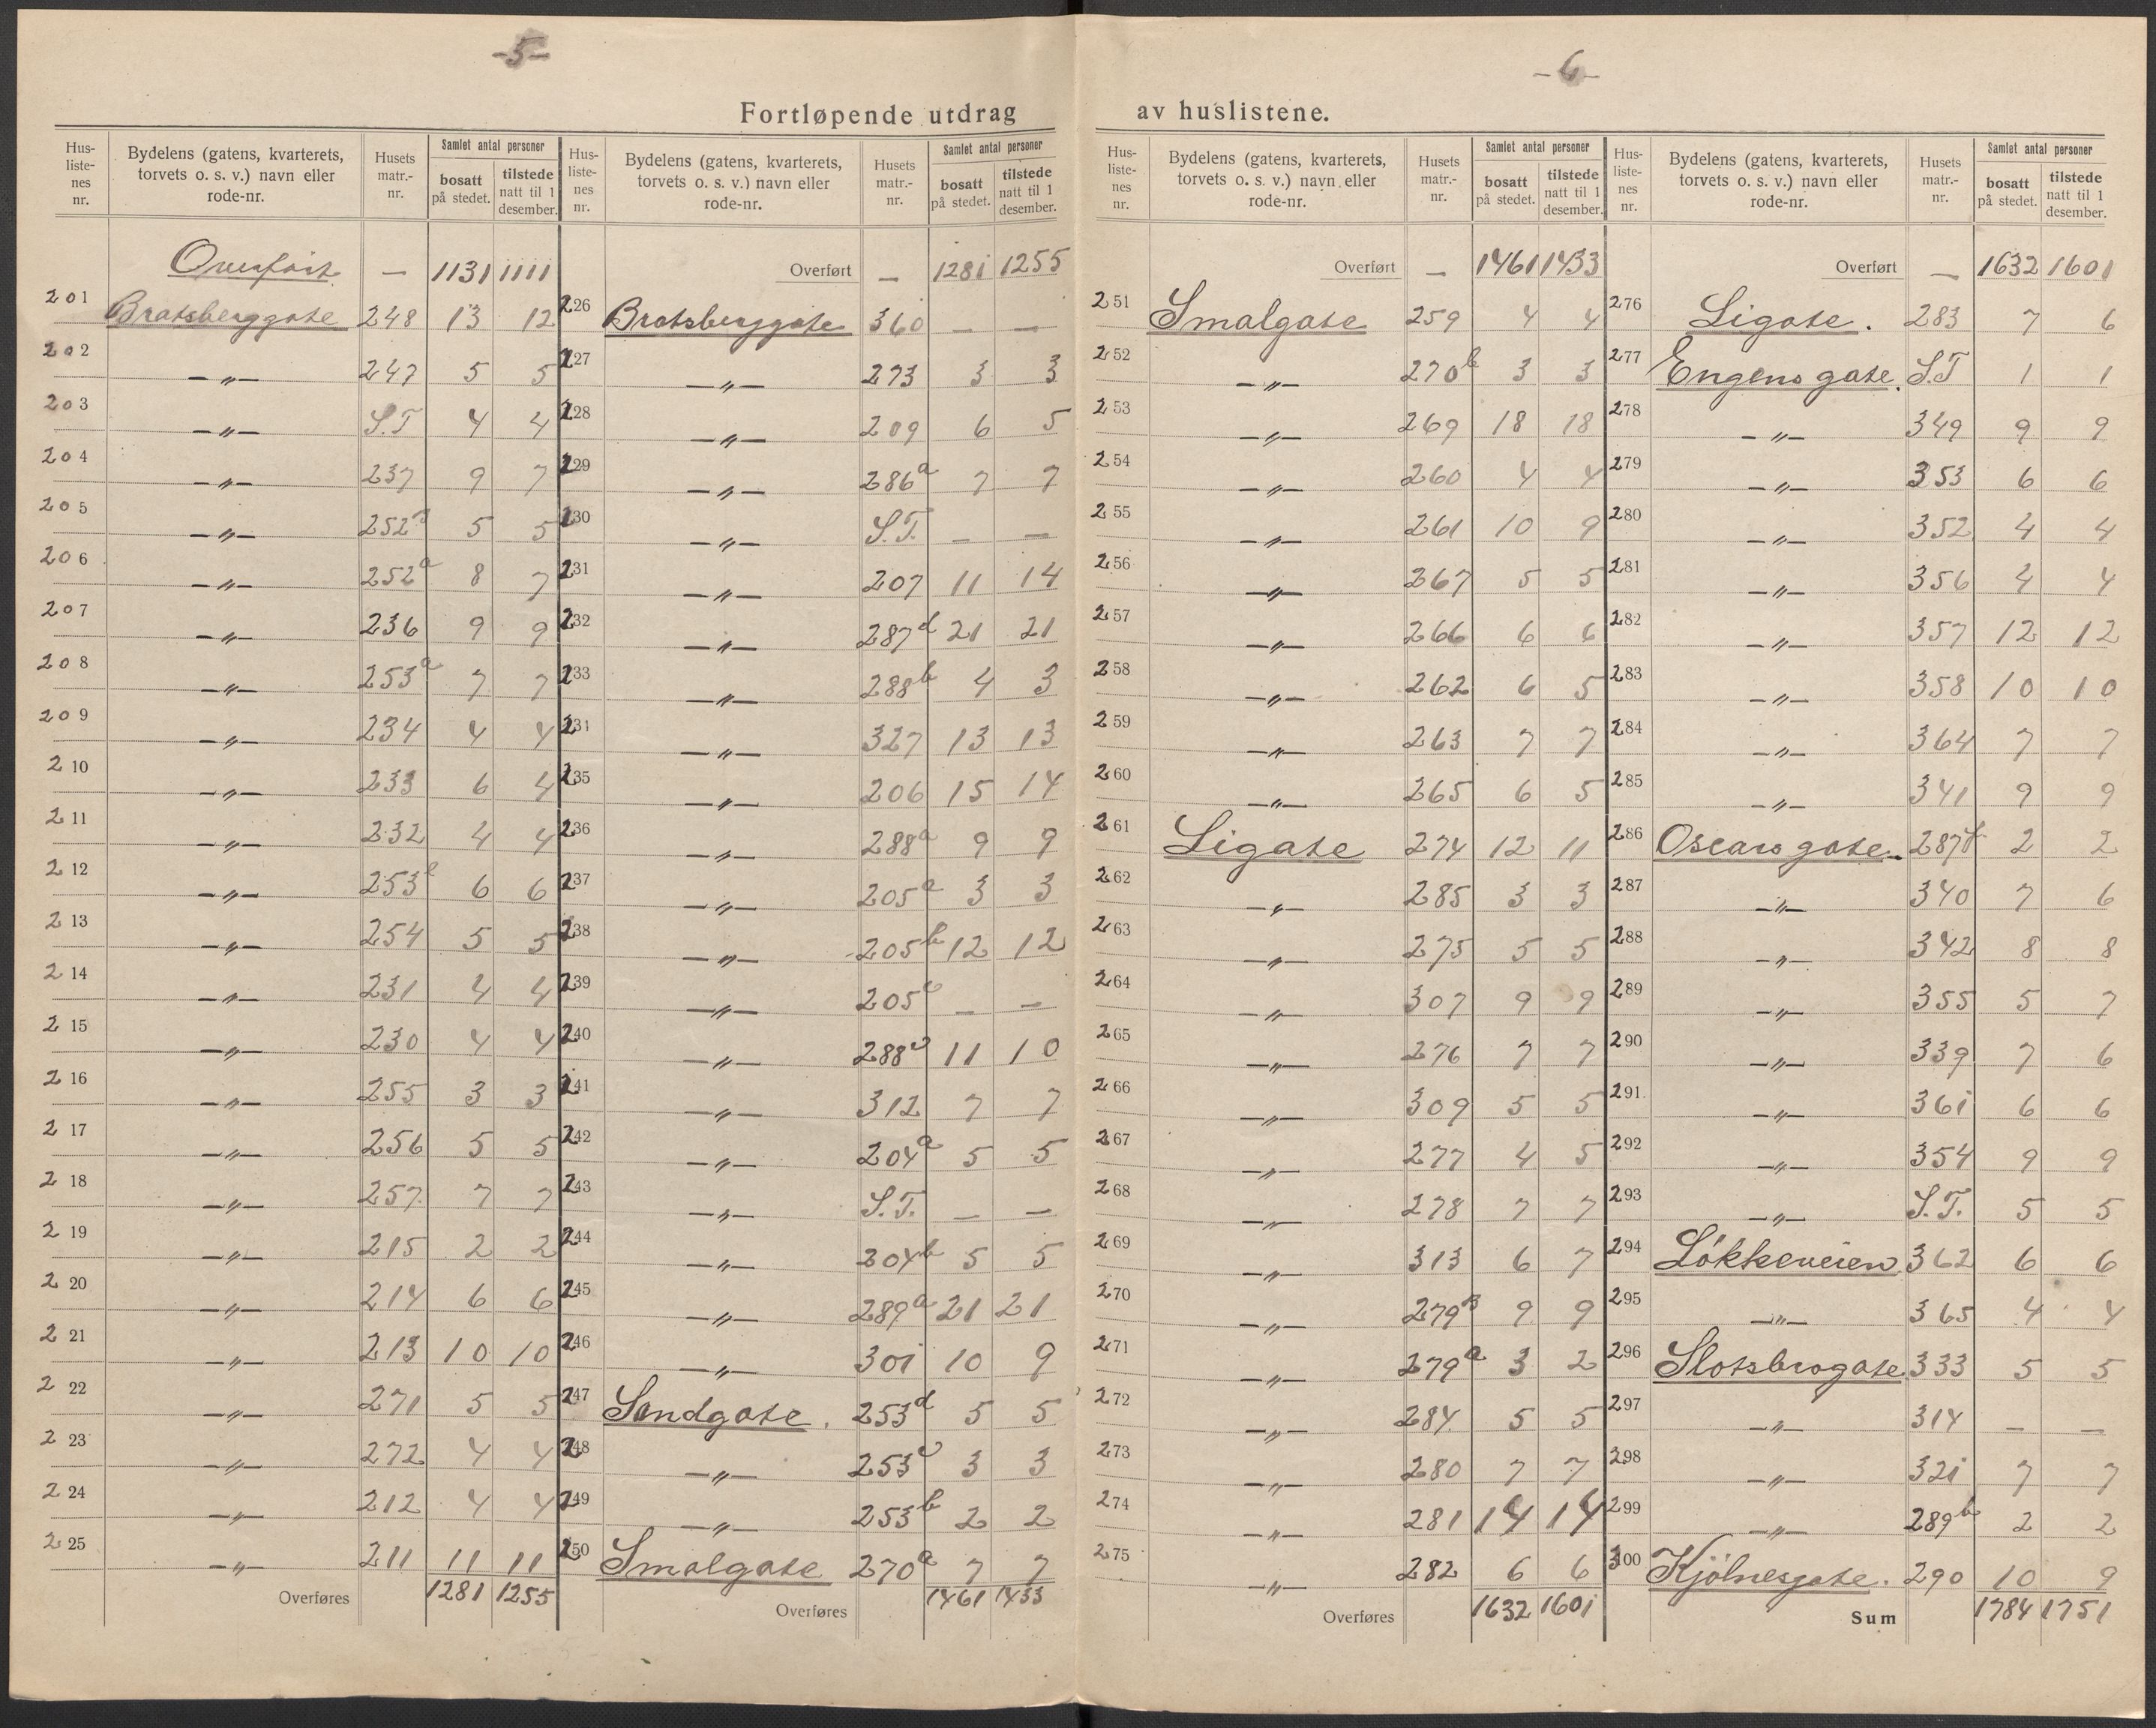 -5-
-6-
Fortløpende utdrag av huslistene.
Hus-liste-nes nr. Bydelens (gatens, kvarterets, torvets o. s. v.) navn eller rode-nr. Husets matr.-nr. Samlet antal personer bosatt på stedet. tilstede natt til 1 desember.
Overført — 1131 1111
201 Bratsberggate 248 13 12
202 —〃— 247 5 5
203 —〃— S.T 4 4
204 —〃— 237 9 7
205 —〃— 252 5 5
206 —〃— 252a 8 7
207 —〃— 236 9 9
208 —〃— 253a 7 7
209 —〃— 234 4 4
210 —〃— 233 6 4
211 —〃— 232 4 4
212 —〃— 253 6 6
213 —〃— 254 5 5
214 —〃— 231 4 4
215 —〃— 230 4 4
216 —〃— 255 3 3
217 —〃— 256 5 5
218 —〃— 257 7 7
219 —〃— 215 2 2
220 —〃— 214 6 6
221 —〃— 213 10 10
222 —〃— 271 5 5
223 —〃— 272 4 4
224 —〃— 212 4 4
225 —〃— 211 11 11
Overføres 1281 1255
Hus-liste-nes nr. Bydelens (gatens, kvarterets, torvets o. s. v.) navn eller rode-nr. Husets matr.-nr. Samlet antal personer bosatt på stedet. tilstede natt til 1 desember.
Overført — 1281 1255
226 Bratsberggate 360 — —
227 —〃— 273 3 3
228 —〃— 209 6 5
229 —〃— 286a 7 7
230 —〃— S.T. — —
231 —〃— 207 11 14
232 —〃— 287d 21 21
233 —〃— 288b 4 3
231 —〃— 327 13 13
235 —〃— 206 15 14
236 —〃— 288a 9 9
237 —〃— 205a 3 3
238 —〃— 205b 12 12
239 —〃— 205c — —
240 —〃— 288c 11 10
241 —〃— 312 7 7
242 —〃— 204a 5 5
243 —〃— S.T. — —
244 —〃— 204b 5 5
245 —〃— 289a 21 21
246 —〃— 301 10 9
247 Sandgate. 253d 5 5
248 —〃— 253c 3 3
249 —〃— 253b 2 2
250 Smalgate 270a 7 7
Overføres 1461 1433
Hus-liste-nes nr. Bydelens (gatens, kvarterets, torvets o. s. v.) navn eller rode-nr. Husets matr.-nr. Samlet antal personer bosatt på stedet. tilstede natt til 1 desember.
Overført — 1461 1433
251 Smalgate 259 4 4
252 —〃— 270b 3 3
253 —〃— 269 18 18
254 —〃— 260 4 4
255 —〃— 261 10 9
256 —〃— 267 5 5
257 —〃— 266 6 6
258 —〃— 262 6 5
259 —〃— 263 7 7
260 —〃— 265 6 5
261 Ligate 274 12 11
262 —〃— 285 3 3
263 —〃— 275 5 5
264 —〃— 307 9 9
265 —〃— 276 7 7
266 —〃— 309 5 5
267 —〃— 277 4 5
268 —〃— 278 7 7
269 —〃— 313 6 7
270 —〃— 279B 9 9
271 —〃— 279a 3 2
272 —〃— 284 5 5
273 —〃— 280 7 7
274 —〃— 281 14 14
275 —〃— 282 6 6
Overføres 1632 1601
Hus-liste-nes nr. Bydelens (gatens, kvarterets, torvets o. s. v.) navn eller rode-nr. Husets matr.-nr. Samlet antal personer bosatt på stedet. tilstede natt til 1 desember.
Overført — 1632 1601
276 Ligate. 283 7 6
277 Engensgate. S.T 1 1
278 —〃— 349 9 9
279 —〃— 353 6 6
280 —〃— 352 4 4
281 —〃— 356 4 4
282 —〃— 357 12 12
283 —〃— 358 10 10
284 —〃— 364 7 7
285 —〃— 341 9 9
286 Oscarsgate. 287 2 2
287 —〃— 340 7 6
288 —〃— 342 8 8
289 —〃— 355 5 7
290 —〃— 339 7 6
291 —〃— 361 6 6
292 —〃— 354 9 9
293 —〃— S.T. 5 5
294 Løkkeveien. 362 6 6
295 —〃— 365 4 4
296 Slotsbrogate. 333 5 5
297 —〃— 314 — —
298 —〃— 321 7 7
299 —〃— 289b 2 2
300 Kjølnesgate. 290 10 9
Sum 1784 1751